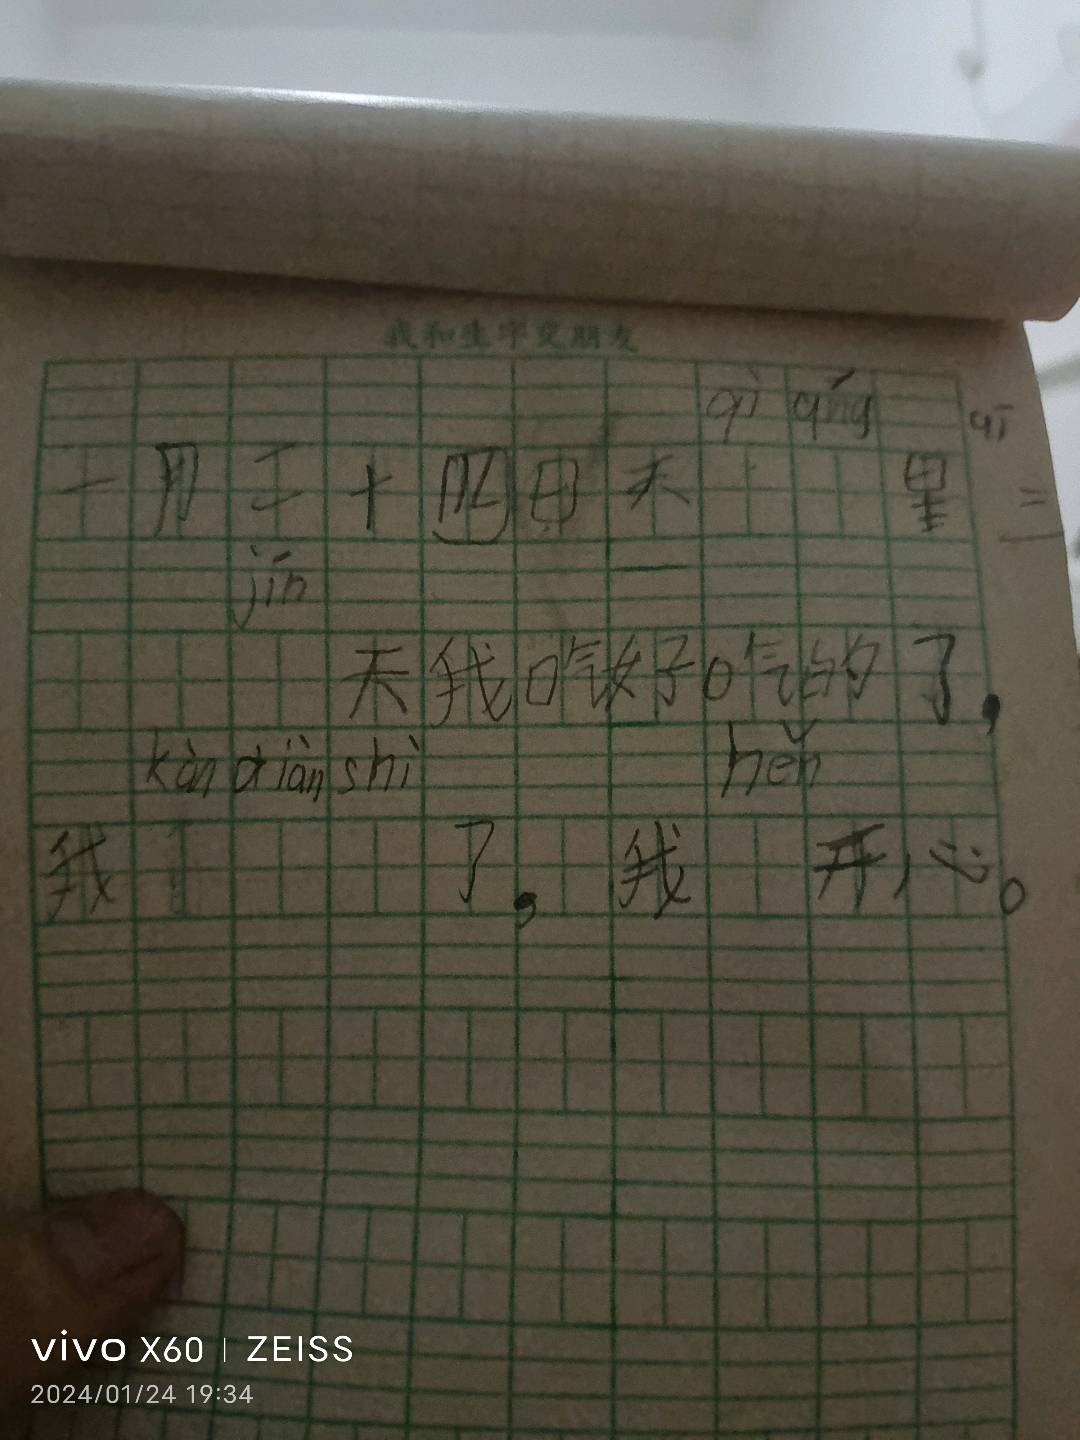 我和生字交朋友
qì qíng qī
一月二十四日天 星 二
jīn
天我吃好吃的了,
kàn diàn shì hěn
我 了,我 开心。
vivo X60 | ZEISS
2024/01/24 19:34